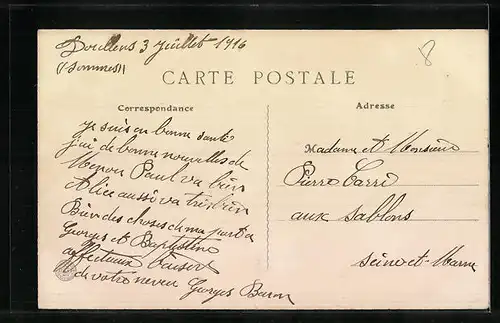 Doullens 3 juillet 1916
(Sommes)
8
CARTE POSTALE
Correspondance
Adresse
je suis en bonne santé
j'ai de bonne nouvelles de
Paul va bien
Alice aussi va très bien
Bien des choses de ma part a
Georges et Baptistine
affectueux baisers
de votre neveu Georges Baron
Madame et Monsieur
Pierre Carré
aux sablons
seine-et-Marne